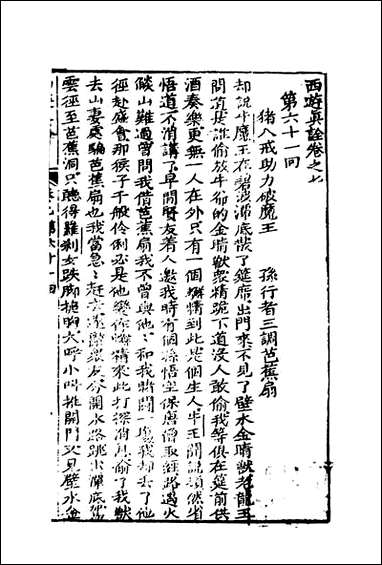 西遊真詮卷之七
第六十一回
猪八戒助力破魔王　孫行者三調芭蕉扇
却說牛魔王在碧波潭底散了筵席出門來不見了壁水金睛獸老龍王
問道是誰偷放牛爺的金睛獸衆精跪下道没人敢偷我等俱在筵前供
酒奏樂更無一人在外只有一個蠏精到此是個生人牛王聞說頓然省
悟道不消講了早間賢友着人邀我時有個孫悟空保唐僧取經路遇火
燄山難過曾問我借芭蕉扇我不曾與他他和我賭鬪一塲我却去了他
徑赴盛會那猴子千般伶俐必是他變作蠏精來此打探消息偷了我獸
去山妻處騙芭蕉扇也我當急急趕去遂與衆友分開水路跳出潭底駕
雲徑至芭蕉洞只聽得羅刹女跌脚搥胸大呼小叫推開門又見壁水金
第六十一回